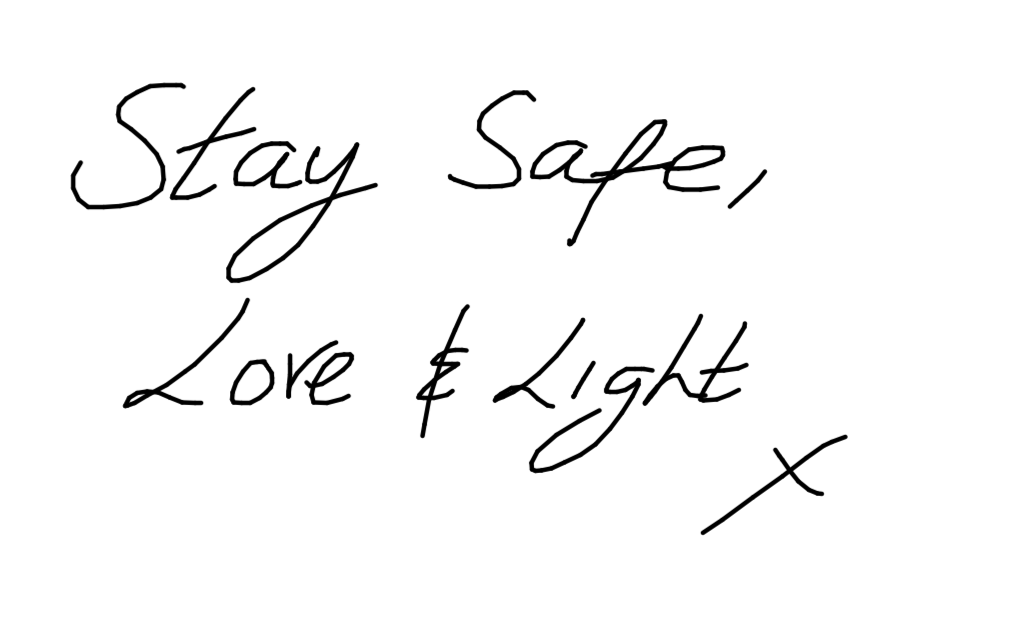 Stay Safe,
Love & Light
x